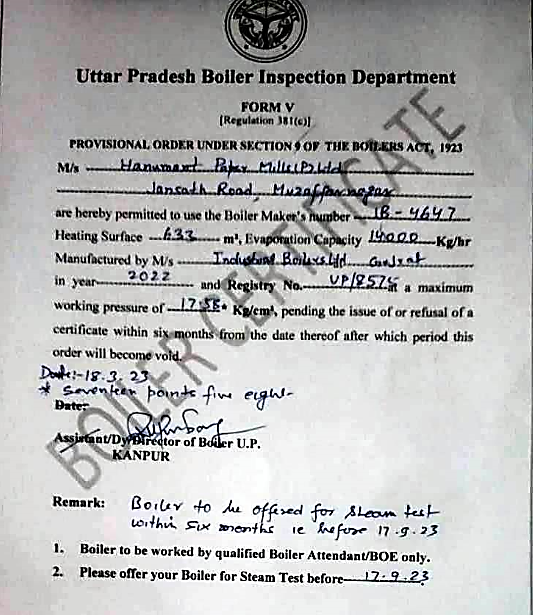 Uttar Pradesh Boiler Inspection Department
FORM V
[Regulation 381(c)]
PROVISIONAL ORDER UNDER SECTION 9 OF THE BOILERS ACT, 1923
M/s Hanumant Paper Mills (P) Ltd
Jansath Road, Muzaffarnagar
are hereby permitted to use the Boiler Maker's number IB-4647
Heating Surface 633 m², Evaporation Capacity 14000 Kg/hr
Manufactured by M/s Industrial Boilers Ltd. Gujrat
in year 2022 and Registry No. UP/8575 at a maximum
working pressure of 17.58* Kg/cm², pending the issue of or refusal of a
certificate within six months from the date thereof after which period this
order will become void.
Date:- 18.3.23
* Seventeen points five eight-
Date:
Assistant/Dy Director of Boiler U.P.
KANPUR
Remark: Boiler to be offered for steam test
within six months ie before 17.9.23
1. Boiler to be worked by qualified Boiler Attendant/BOE only.
2. Please offer your Boiler for Steam Test before 17.9.23
BOILER CERTIFICATE